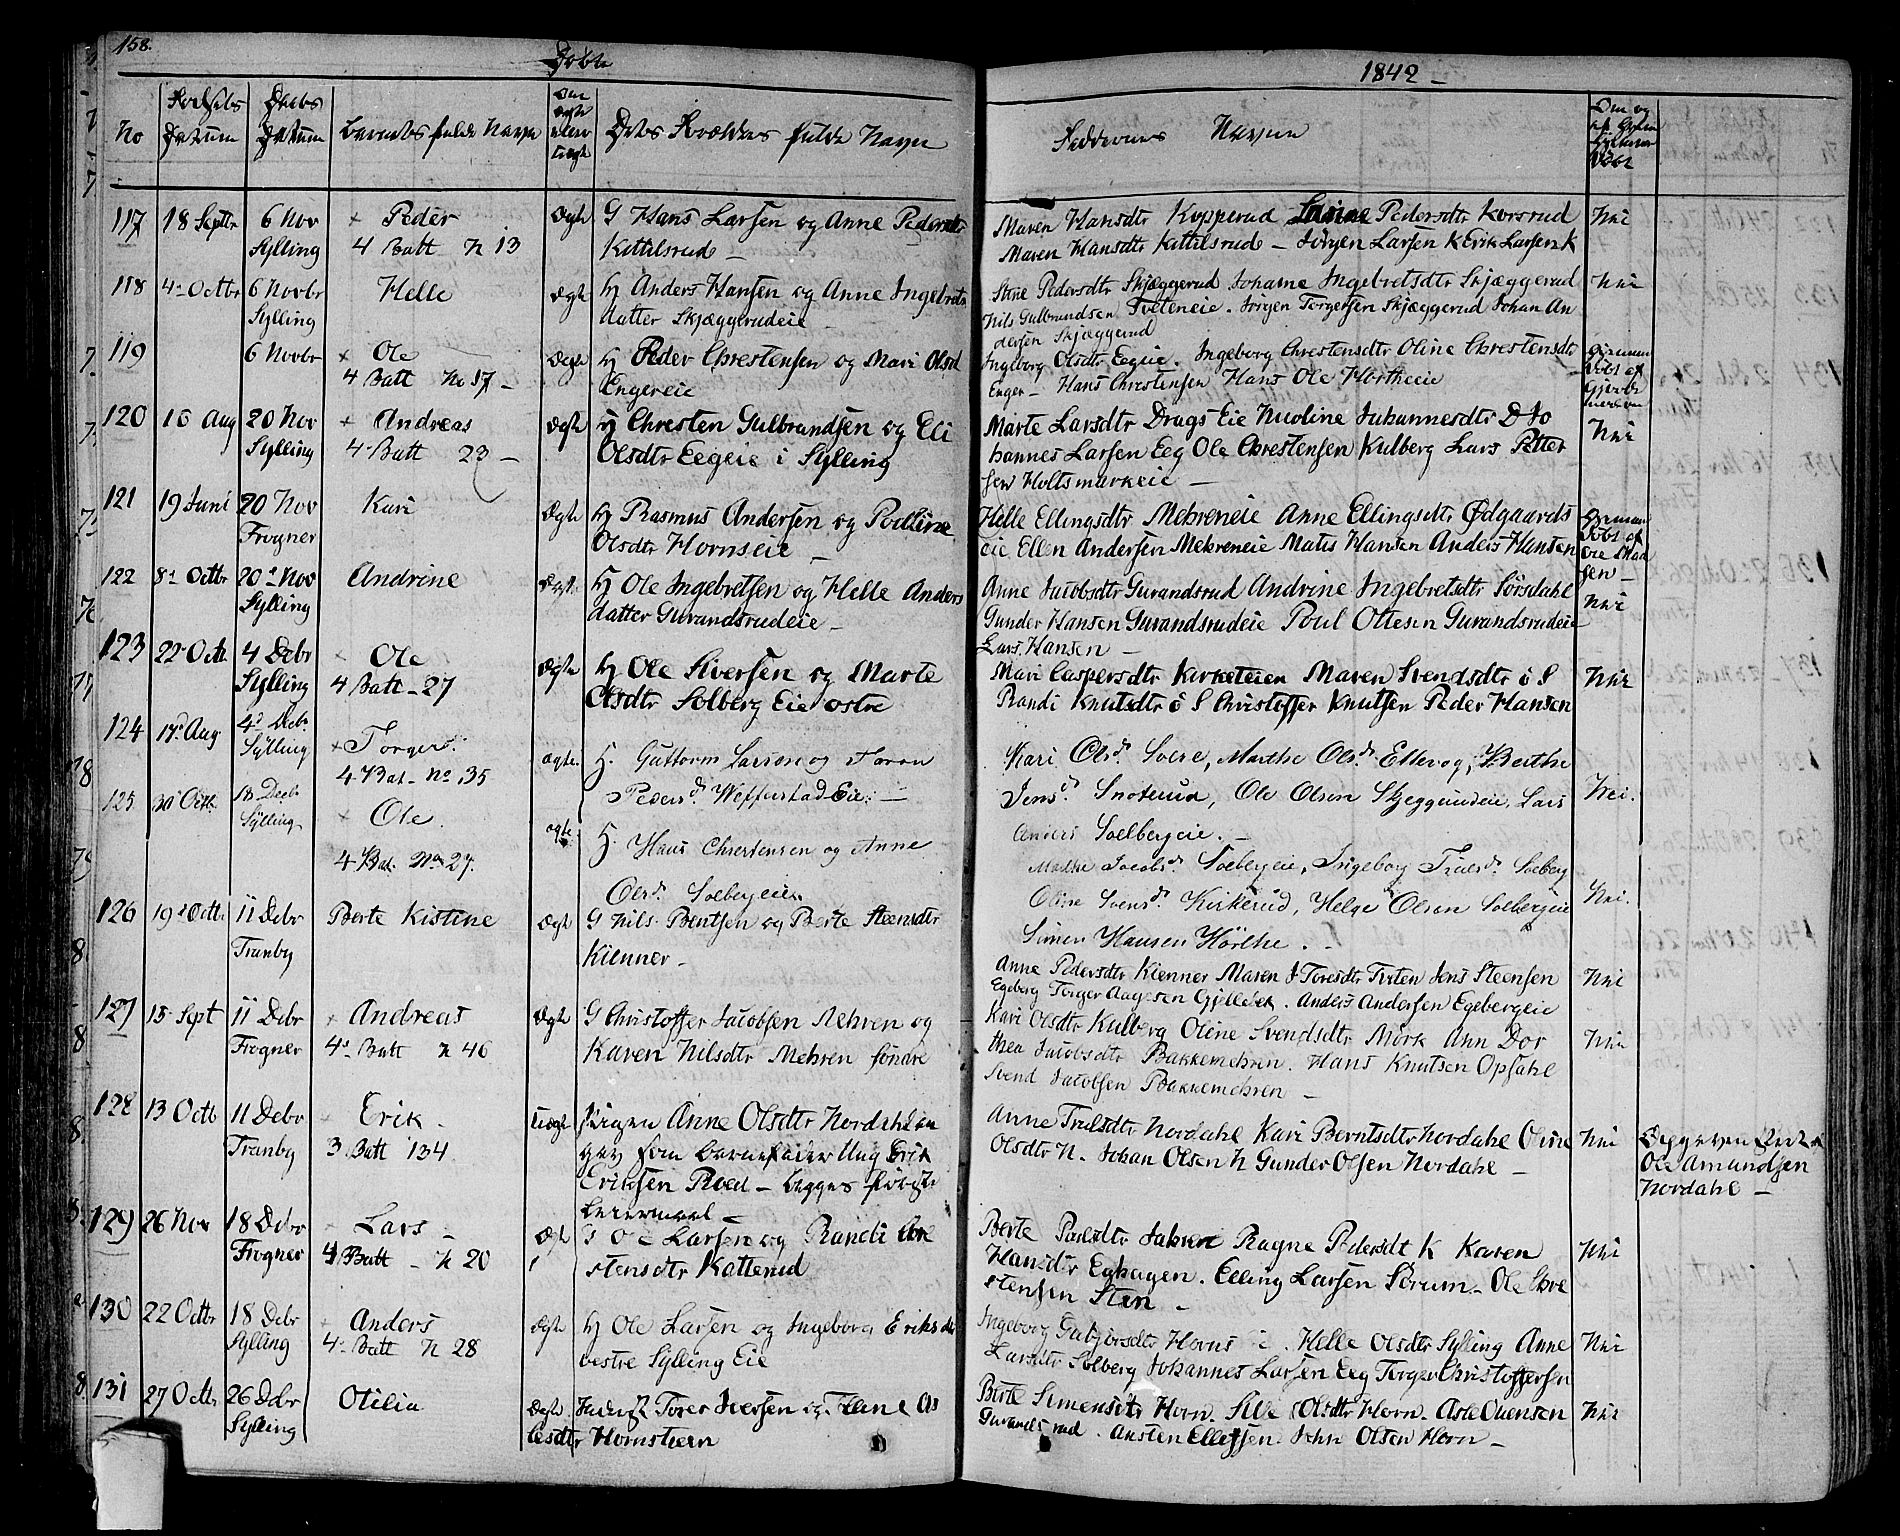 158.
Døbte
1842 –
No
Fødsels Datum
Daabs Datum
Barnets fulde Navn
Om ægte eller uægte
Dets Forældres fulde Navn
Faddernes Navne
117 18 Septbr 6 Nov Sylling
+ Peder
4 Batt N 13
Ægte
G Hans Larsen og Anne Pedersdtr
Kittilsrud –
Maren Hansdtr Kopperud Pedersdtr Korsrud
Maren Hansdtr Kittilsrud – Jørgen Larsen K Erik Larsen K
Nei
118 4de Octbr 6 Novbr Sylling
Helle
Ægte
Hj Anders Hansen og Anne Ingebrets
datter Skjæggerudeie –
Stine Pedersdtr Skjæggerud Johanne Ingebretsdtr Skjæggerud
Nils Gulbrandsen Tveteneie. Jörgen Torgersen Skjæggerud Johan An
dersen Skjæggerud
Nei
119 6 Novbr
+ Ole
4 Batt No 17 –
Ægte
Hj Peder Chrestensen og Mari Olsd
Engereie
Ingeborg Olsdtr Eegeie. Ingeborg Chrestensdtr Oline Chrestensdtr
Enger – Hans Chrestensen Hans Ole Hortheeie
120 16 Aug 20 Nov Sylling
+ Andreas
4 Batt 23 –
Ægte
Hj Chresten Gulbrandsen og Eli
Olsdtr Eegeie i Sylling
Marte Larsdtr Drags Eie Nicoline Johannesdtr D Jo
hannes Larsen Eeg Ole Chrestensen Kulberg Lars Petter
sen Holtsmarkeie –
Nei
121 19 Juni 20 Nov Frogner
Kari
Ægte
Hj Rasmus Andersen og Pauline
Olsdtr Hornseie –
Helle Ellingsdtr Mehreneie Anne Ellingsdtr Ødgaards
eie Ellen Andersen Mehreneie Matis Hansen Anders Hansen
122 8de Octbr 20de Nov Sylling
Andrine
Ægte
Hj Ole Ingebretsen og Helle Anders
datter Gurandsrudeie –
Anne Jacobsdtr Gurandsrud Andrine Ingebretsdtr Sørsdahl
Gunder Hansen Gurandsrudeie Poul Olsen Gurandsrudeie
Lars Hansen –
Nei
123 22 Octb 4 Debr Sylling
+ Ole
4 Batt – 27
Ægte
Hj Ole Siversen og Marte
Olsdtr Solberg Eie østre
Mari Caspersdtr Kirketeien Maren Svendsdtr ö S
Randi Knutsdtr ö S Christoffer Knutsen Peder Hansen
Nei
124 17de Aug 4de Decbr Sylling
+ Torger.
4 Bat – No 35
ægte.
Hj. Guttorm Larsen og Toran
Pedersd. Wefferstad Eie. –
Kari Olsd. Svere, Marthe Olsd. Ellevog, Berthe
Jensd. Snoterud, Ole Olsen Skjeggerudeie, Lars
Anders Solbergeie. –
Nei.
125 30 Octb. 18 Decb Sylling
+ Ole.
4 Bat. No 27.
ægte
Hj. Hans Chrestensen og Anne
Olsd. Solbergeie.
Marthe Jacobsd. Solbergeie, Ingeborg Truesd. Solberg
Oline Svensd. Kirkerud, Helge Olsen Solbergeie
Simen Hansen Hörthe.
Nei.
126 19de Octbr 11 Debr Tranby
Berte Kistine
Ægte
G Nils Bentsen og Berte Steensdtr
Kienner –
Anne Pedersdtr Kienner Maren J Toresdtr Tveten Jens Steensen
Egeberg Torger Aagesen Gjellebek. Anders Andersen Egebergeie
Nei
127 15 Sept 11 Debr Frogner
+ Andreas
4de Batt N 46
Ægte
G Christoffer Jacobsen Mehren og
Karen Nilsdtr Mehren søndre
Kari Olsdtr Kulberg Oline Svendsdtr Mörk Ann Dor
thea Jacobsdtr Bakkemehren. Hans Knutsen Opsahl
Svend Jacobsen Bakkemehren –
Nei
128 13 Octb 11 Debr Tranby
+ Erik
3 Batt 134
Uægt
Pigen Anne Olsdtr Nordahl an
gav som barnefader Ung Erik
Eriksen Roed – begges første
Leiermaal –
Anne Trulsdtr Nordahl Kari Berntsdtr Nordahl Oline
Olsdtr N. Johan Olsen N Gunder Olsen Nordahl –
Nei
Ole Amundsen
Nordahl –
129 26 Nov 18 Debr Frogner
+ Lars –
4 Batt – N 20
Ægt
G Ole Larsen og Randi
stensdtr Katterud
Berte Paulsdtr Jahren Ragne Pedersdt K Karen
Hansdtr Eghagen. Elling Larsen Sørum – Ole
stensen Sten –
Nei
130 22 Octbr 18 Debr Sylling
+ Anders
4de Batt N 28
Ægte
Hj Ole Larsen og Ingeborg Eriksdtr
vestre Sylling Eie
Ingeborg Horns . Helle Olsdtr Sylling Anne
Larsdtr Solberg Johannes Larsen Eeg Torger Christoffersen
Nei
131 27 Octbr 26 Debr Sylling
Otilia
Ægte
Torer Iversen og
lesdtr Hornsteen
Berte Simensdtr Horn. Sili Olsdtr Horn – Asle Evensen
Gurandsrud. Austen Ellefsen. John Olsen Horn –
Nei